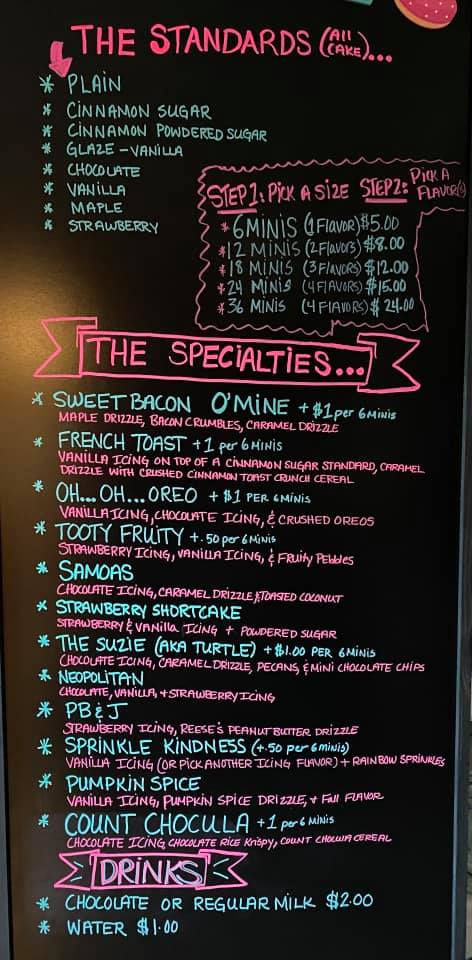 THE STANDARDS (All CAKE)...
* PLAIN
* CINNAMON SUGAR
* CINNAMON POWDERED SUGAR
* GLAZE - VANILLA
* CHOCOLATE
* VANILLA
* MAPLE
* STRAWBERRY
STEP 1: PICK A SIZE STEP 2: PICK A FLAVOR(S)
* 6 MINIS (1 FLAVOR) $5.00
* 12 MINIS (2 FLAVORS) $8.00
* 18 MINIS (3 FLAVORS) $12.00
* 24 MINIS (4 FLAVORS) $15.00
* 36 MINIS (4 FLAVORS) $24.00
THE SPECIALTIES...
* SWEET BACON O'MINE + $1 per 6 MINIS
MAPLE DRIZZLE, BACON CRUMBLES, CARAMEL DRIZZLE
* FRENCH TOAST +1 per 6 MINIS
VANILLA ICING ON TOP OF A CINNAMON SUGAR STANDARD, CARAMEL
DRIZZLE WITH CRUSHED CINNAMON TOAST CRUNCH CEREAL
* OH... OH... OREO + $1 PER 6 MINIS
VANILLA ICING, CHOCOLATE ICING, & CRUSHED OREOS
* TOOTY FRUITY +.50 per 6 Minis
STRAWBERRY ICING, VANILLA ICING, & Fruity Pebbles
* SAMOAS
CHOCOLATE ICING, CARAMEL DRIZZLE & TOASTED COCONUT
* STRAWBERRY SHORTCAKE
STRAWBERRY & Vanilla ICING + POWDERED SUGAR
* THE SUZIE (AKA TURTLE) +$1.00 PER 6 MINIS
CHOCOLATE ICING, CARAMEL DRIZZLE, PECANS, & MINI CHOCOLATE CHIPS
* NEOPOLITAN
CHOCOLATE, VANILLA, + STRAWBERRY ICING
* PB & J
STRAWBERRY ICING, REESE'S PEANUT BUTTER DRIZZLE
* SPRINKLE KINDNESS (+.50 per 6 minis)
VANILLA ICING (OR PICK ANOTHER ICING FLAVOR) + RAINBOW SPRINKLES
* PUMPKIN SPICE
VANILLA ICING, PUMPKIN SPICE DRIZZLE, + Fall FLAVOR
* COUNT CHOCULA +1 per 6 MINIS
CHOCOLATE ICING CHOCOLATE RICE KRISPY, COUNT CHOCULA CEREAL
DRINKS
* CHOCOLATE OR REGULAR MILK $2.00
* WATER $1.00